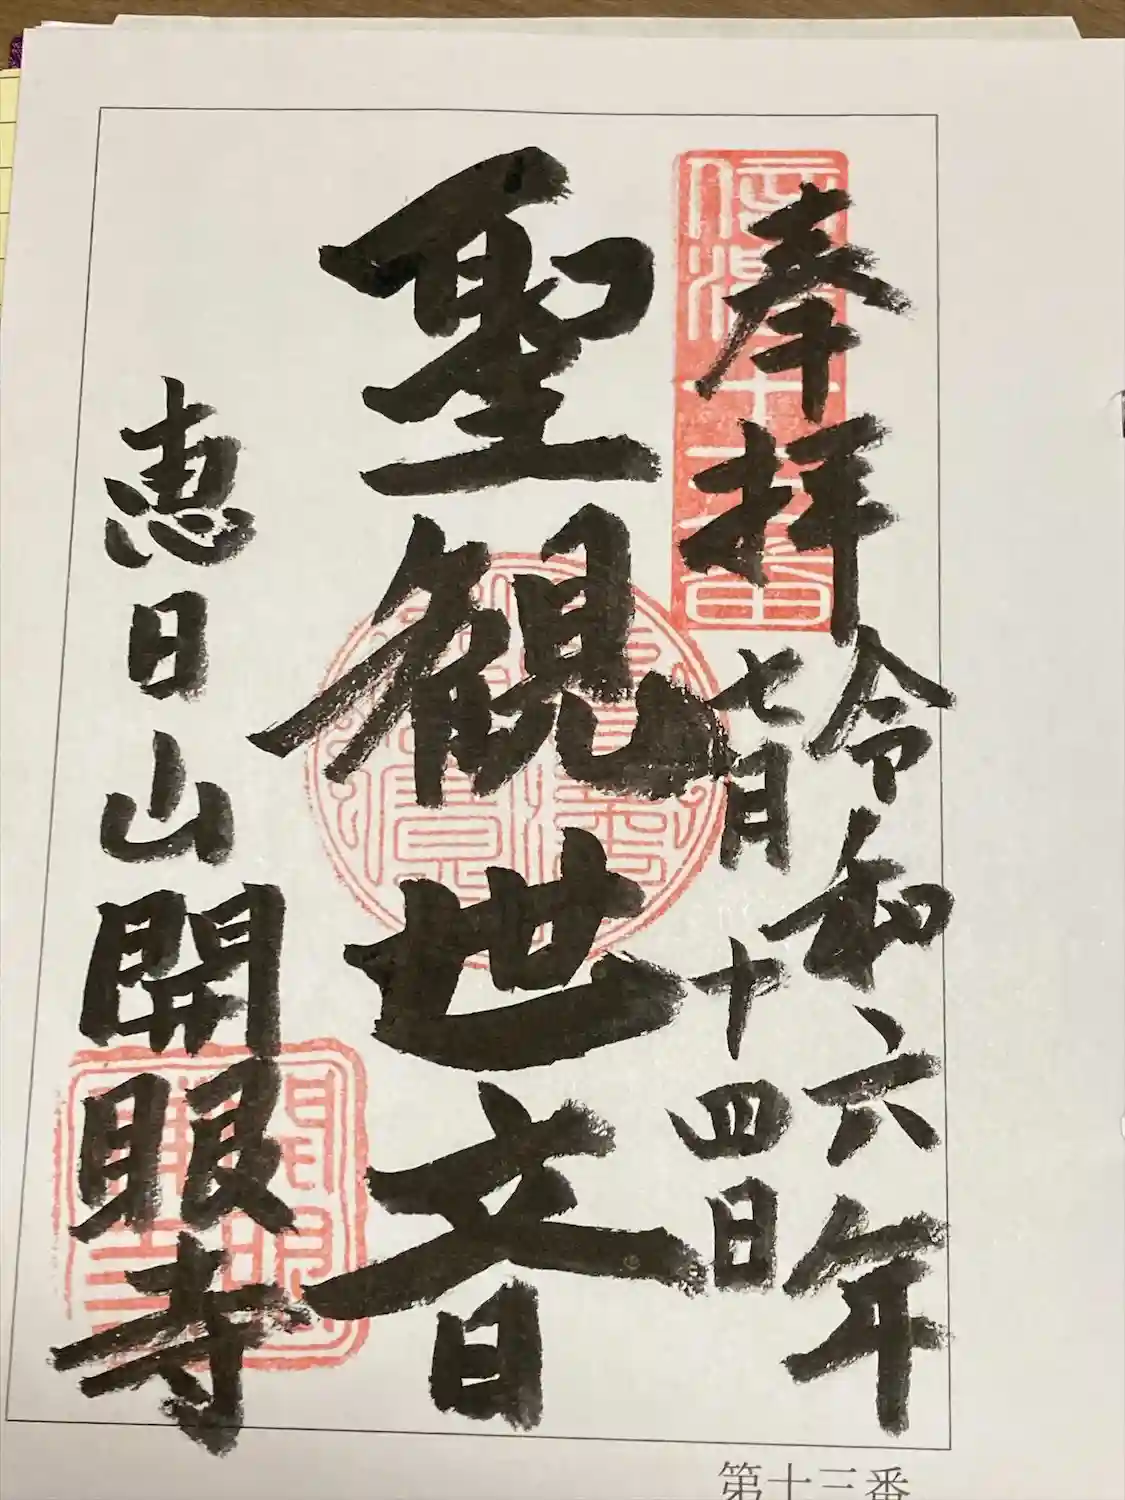 奉拝
令和六年
七月十四日
聖観世音
恵日山開眼寺
第十三番